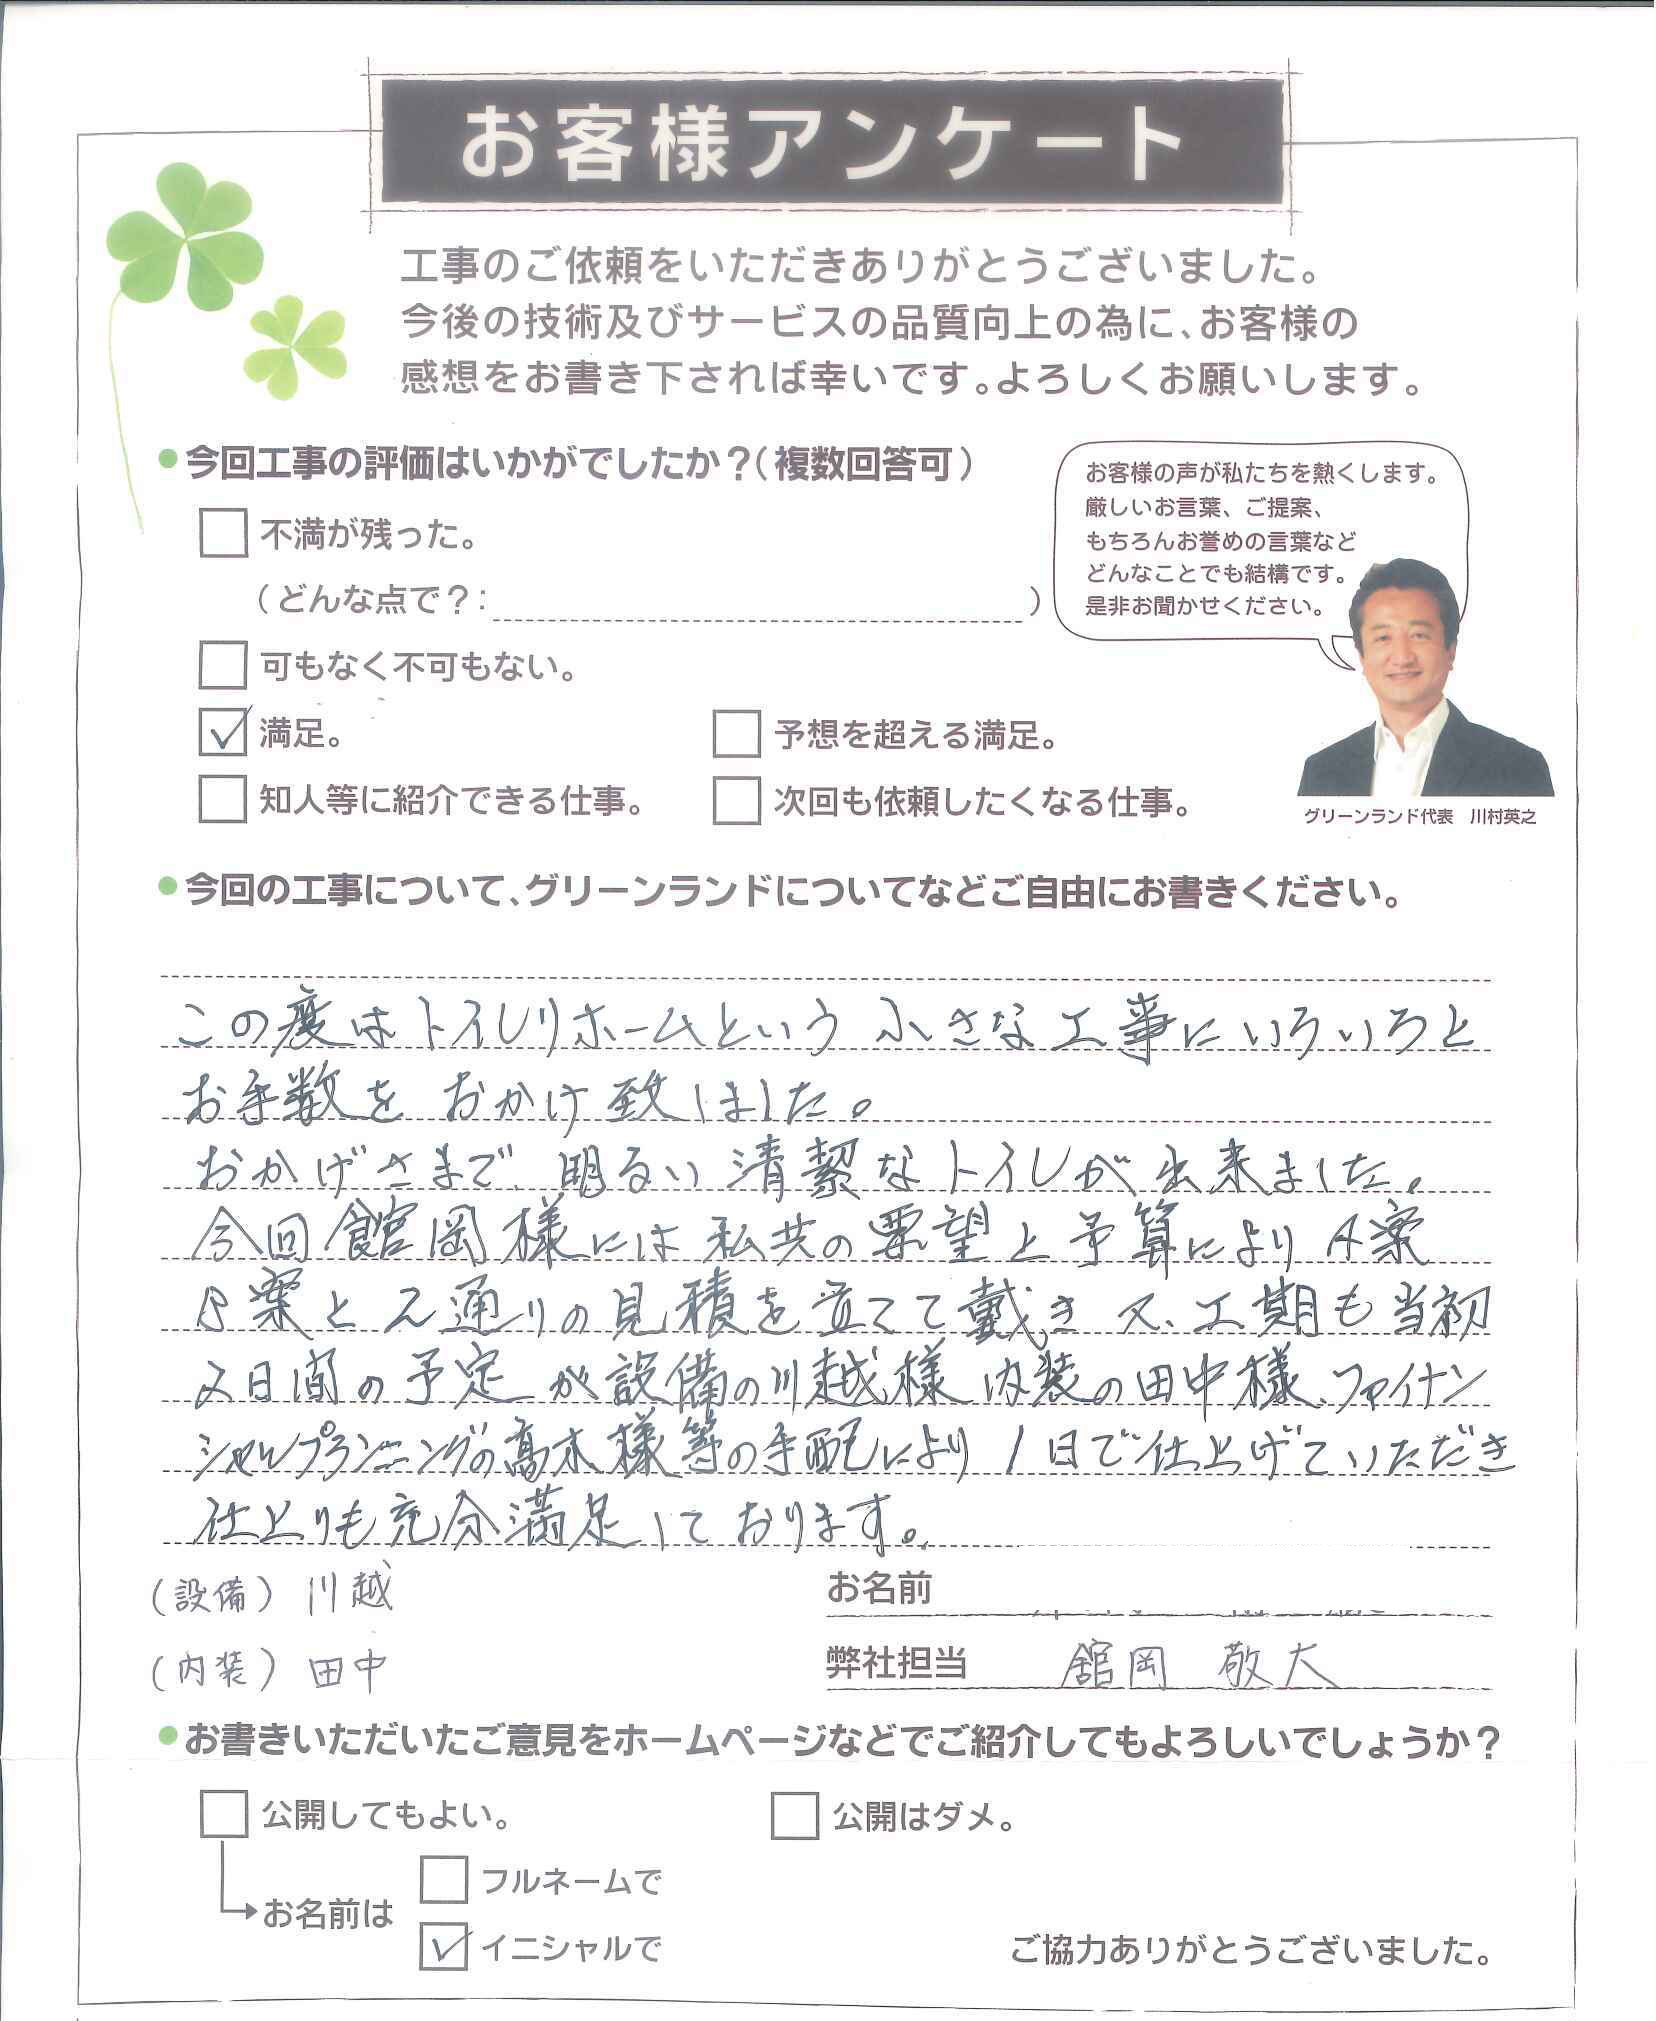 お客様アンケート
工事のご依頼をいただきありがとうございました。
今後の技術及びサービスの品質向上の為に、お客様の
感想をお書き下されば幸いです。よろしくお願いします。
今回工事の評価はいかがでしたか？（複数回答可）
不満が残った。
（どんな点で？：　）
可もなく不可もない。
満足。
予想を超える満足。
知人等に紹介できる仕事。
次回も依頼したくなる仕事。
お客様の声が私たちを熱くします。
厳しいお言葉、ご提案、
もちろんお誉めの言葉など
どんなことでも結構です。
是非お聞かせください。
グリーンランド代表　川村英之
今回の工事について、グリーンランドについてなどご自由にお書きください。
この度はトイレリホームという 小さな工事にいろいろと
お手数を おかけ致しました。
おかげさまで、明るい清潔なトイレが出来ました。
今回舘岡様には私共の要望と予算によりA案
B案と2通りの見積を立てて戴き又、工期も当初
2日間の予定が設備の川越様 内装の田中様、ファイナン
シャルプランニングの高木様等の手配により1日で仕上げていただき
仕上りも充分満足しております。
（設備）川越
（内装）田中
お名前
弊社担当　舘岡 敬大
お書きいただいたご意見をホームページなどでご紹介してもよろしいでしょうか？
公開してもよい。
公開はダメ。
お名前は
フルネームで
イニシャルで
ご協力ありがとうございました。